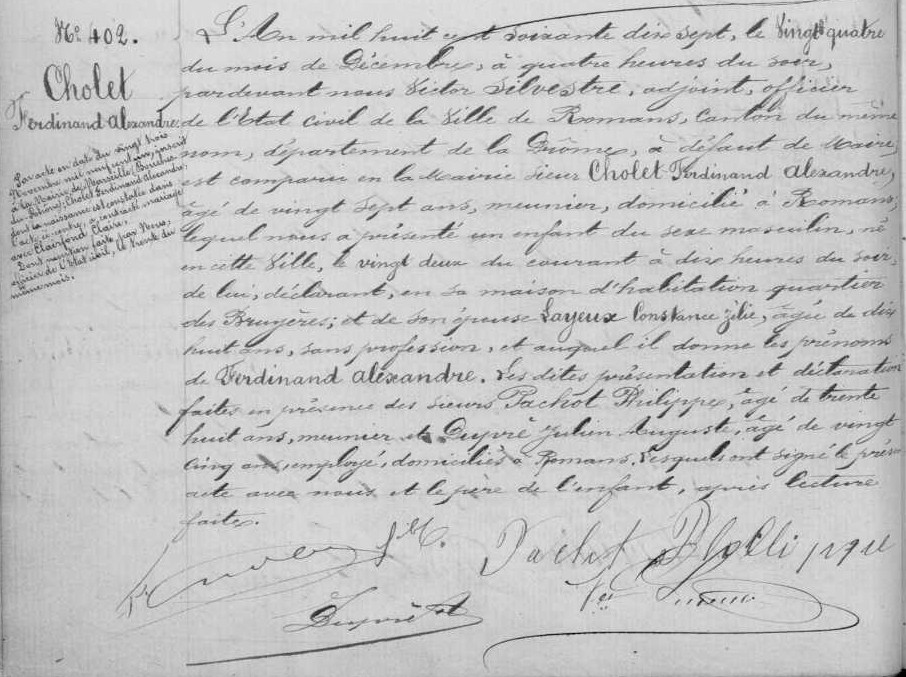 No 402.
Cholet
Ferdinand Alexandre.
Par acte en date du vingt trois
Novembre mil neuf cent un, inscrit
à la Mairie de Marseille, Bouches-
du-Rhône, Cholet Ferdinand Alexandre
dont la naissance est constatée dans
l'acte ci-contre, a contracté mariage
avec Clairfond Claire.
Dont mention faite par Nous,
officier de l'Etat civil, le trente du
même mois.
L'An mil huit cent soixante dix sept, le Vingt quatre
du mois de Décembre, à quatre heures du soir,
pardevant nous Victor Silvestre, adjoint, officier
de l'Etat civil de la Ville de Romans, canton du même
nom, département de la Drôme, à défaut de Maire,
est comparu en la Mairie sieur Cholet Ferdinand Alexandre,
âgé de vingt sept ans, meunier, domicilié à Romans,
lequel nous a présenté un enfant du sexe masculin, né
en cette Ville, le vingt deux du courant à dix heures du soir,
de lui, déclarant, en sa maison d'habitation quartier
des Bruyères; et de son épouse Layeux Constance Zélie, âgée de dix
huit ans, sans profession, et auquel il donne les prénoms
de Ferdinand Alexandre. Les dites présentation et déclaration
faites en présence des sieurs Pachot Philippe, âgé de trente
huit ans, meunier et Dupré Julien Auguste, âgé de vingt
cinq ans, employé, domiciliés à Romans, lesquels ont signé le présent
acte avec nous et le père de l'enfant, après lecture
faite.
Pachot
Dupré